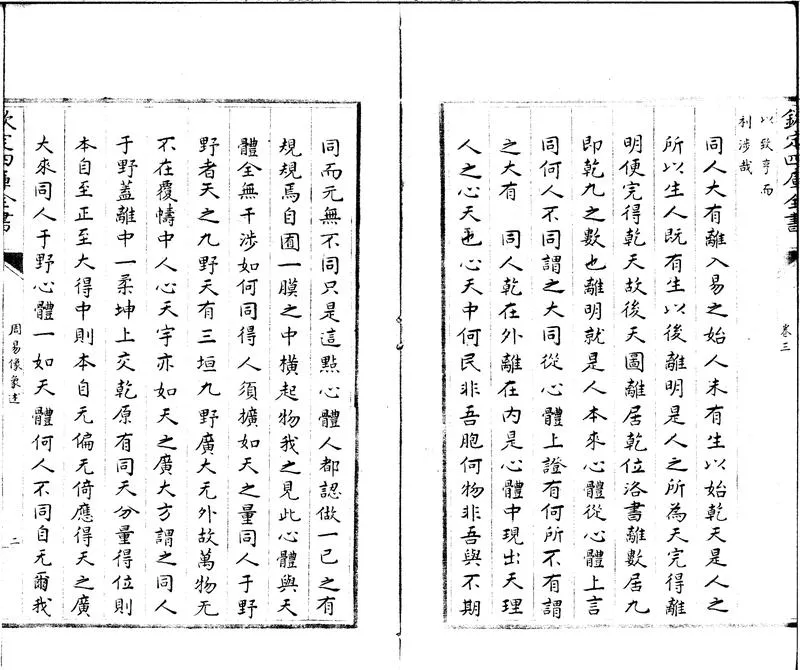 欽定四庫全書
卷三
以致亨而
利涉哉
同人大有離入易之始人未有生以始乾天是人之
所以生人既有生以後離明是人之所為天完得離
明便完得乾天故後天圖離居乾位洛書離數居九
即乾九之數也離明就是人本來心體從心體上言
同何人不同謂之大同從心體上證有何所不有謂
之大有　同人乾在外離在内是心體中現出天理
人之心天也心天中何民非吾胞何物非吾與不期
同而元無不同只是這點心體人都認做一已之有
規規焉自囿一膜之中橫起物我之見此心體與天
體全無干涉如何同得人須擴如天之量同人于野
野者天之九野天有三垣九野廣大无外故萬物无
不在覆幬中人心天宇亦如天之廣大方謂之同人
于野蓋離中一柔坤上交乾原有同天分量得位則
本自至正至大得中則本自无偏无倚應得天之廣
大來同人于野心體一如天體何人不同自无爾我
欽定四庫全書
周易像象述
二